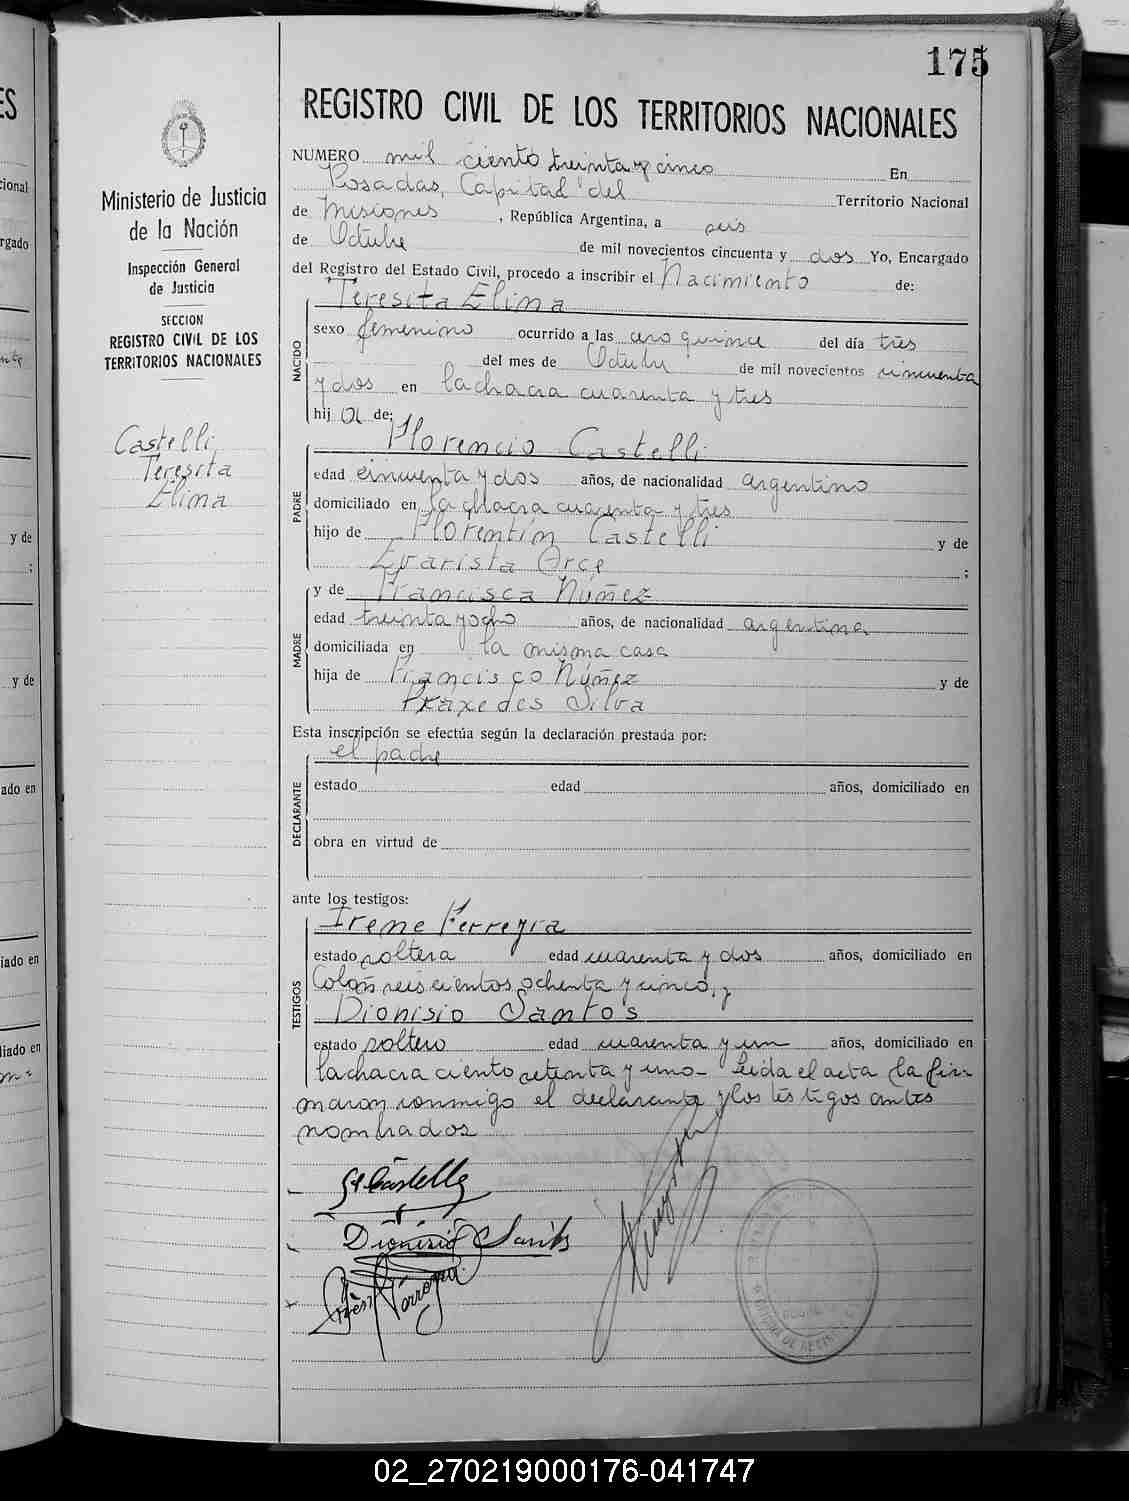 175
REGISTRO CIVIL DE LOS TERRITORIOS NACIONALES
Ministerio de Justicia
de la Nación
Inspección General
de Justicia
SECCION
REGISTRO CIVIL DE LOS
TERRITORIOS NACIONALES
Castelli
Teresita
Elina
NUMERO mil ciento treinta y cinco En
Posadas, Capital del Territorio Nacional
de Misiones, República Argentina, a seis
de Octubre de mil novecientos cincuenta y dos Yo, Encargado
del Registro del Estado Civil, procedo a inscribir el Nacimiento de:
Teresita Elina
NACIDO
sexo femenino ocurrido a las cero quince del día tres
del mes de Octubre de mil novecientos cincuenta
y dos en la chacra cuarenta y tres
hija de:
Florencio Castelli
PADRE
edad cincuenta y dos años, de nacionalidad argentino
domiciliado en la chacra cuarenta y tres
hijo de Florentín Castelli y de
Evarista Orce ;
y de Francisca Núñez
MADRE
edad treinta y ocho años, de nacionalidad argentina
domiciliada en la misma casa
hija de Francisco Núñez y de
Praxedes Silva
Esta inscripción se efectúa según la declaración prestada por:
el padre
DECLARANTE
estado edad años, domiciliado en
obra en virtud de
ante los testigos:
Irene Ferreyra
TESTIGOS
estado soltera edad cuarenta y dos años, domiciliado en
Colón seiscientos ochenta y cinco, y
Dionisio Santos
estado soltero edad cuarenta y un años, domiciliado en
la chacra ciento setenta y uno- Leida el acta la fir
maron conmigo el declarante y los testigos antes
nombrados
Castelli
Dionisio Santos
Irene Ferreyra
02_270219000176-041747